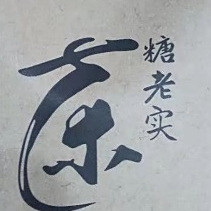 糖老实
茶